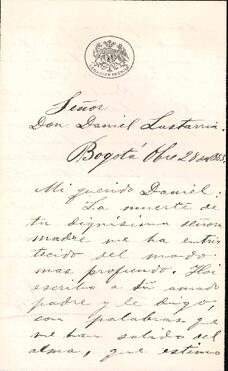 Señor
Don Daniel Lastarria.
Bogotá Obre 28 de
Mi querido Daniel:
La muerte de
tu dignísima señora
madre me ha entris
tecido del modo
mas profundo. Hoi
escribo a tu amado
padre y le digo,
con palabras que
me han salido del
alma, que estimo